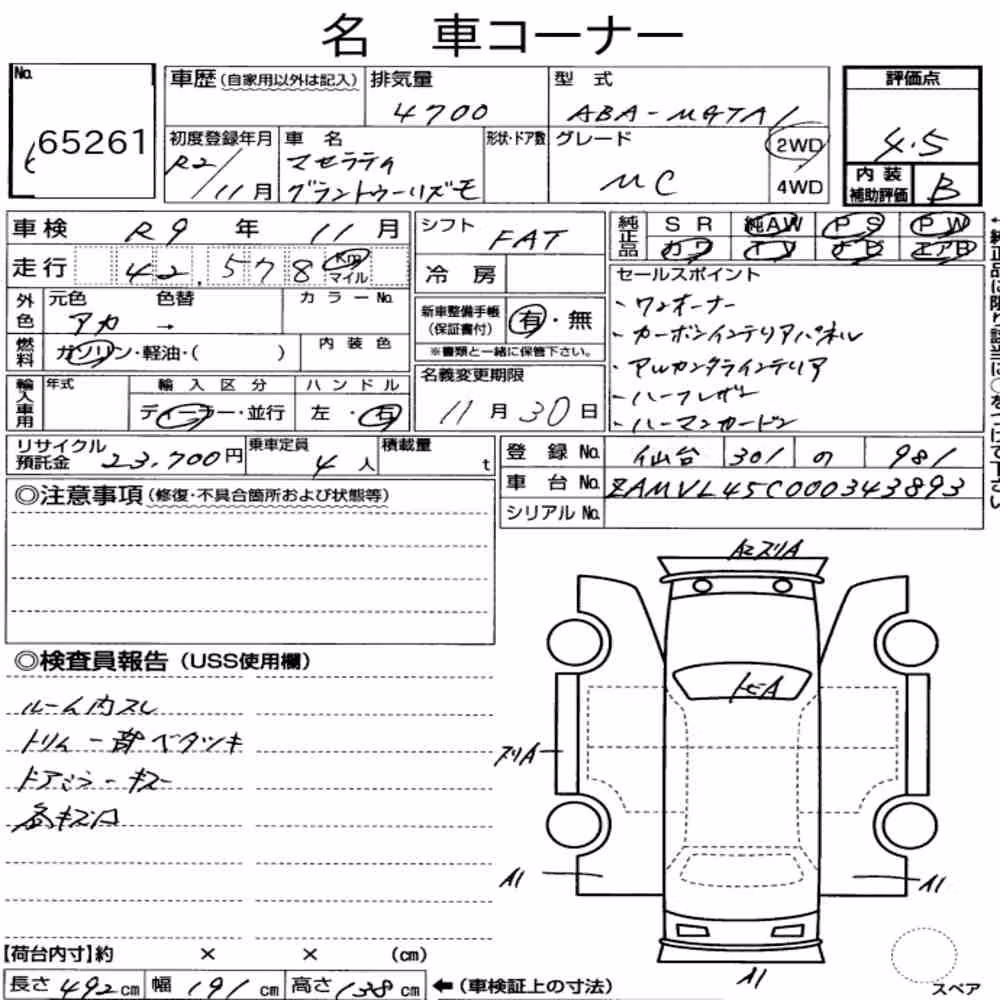 名 車コーナー
No. 65261
車歴 (自家用以外は記入)
排気量 4700
型式 ABA-MGTA1
評価点 4.5
初度登録年月 R2/11月
車名 マセラティ
グラントゥーリズモ
形状・ドア数
グレード MC
2WD
4WD
内装補助評価 B
車検 R9年 11月
シフト FAT
純正品 SR 純AW PS PW
カワ TV ナビ エアB
走行 42,578 Km マイル
冷房
外色 元色 アカ 色替 → カラーNo.
新車整備手帳 (保証書付) 有・無
※書類と一緒に保管下さい。
燃料 ガソリン・軽油・( )
内装色
セールスポイント
・ワンオーナー
・カーボンインテリアパネル
・アルカンタラインテリア
・ハーフレザー
・ハーマンカードン
輸入車用 年式
輸入区分 ディーラー・並行
ハンドル 左・右
名義変更期限 11月30日
リサイクル預託金 23,700円
乗車定員 4人
積載量 t
登録No. 仙台 301 の 981
車台No. ZAMVL45C000343893
シリアルNo.
◎注意事項 (修復・不具合箇所および状態等)
◎検査員報告 (USS使用欄)
ルーム内スレ
トリム一部ベタツキ
ドアミラーキズ
各キズ凹
AヒズリA
トビA
ズリA
A1
A1
A1
【荷台内寸】約 × × (cm)
長さ 492cm 幅 191cm 高さ 138cm ←(車検証上の寸法)
スペア